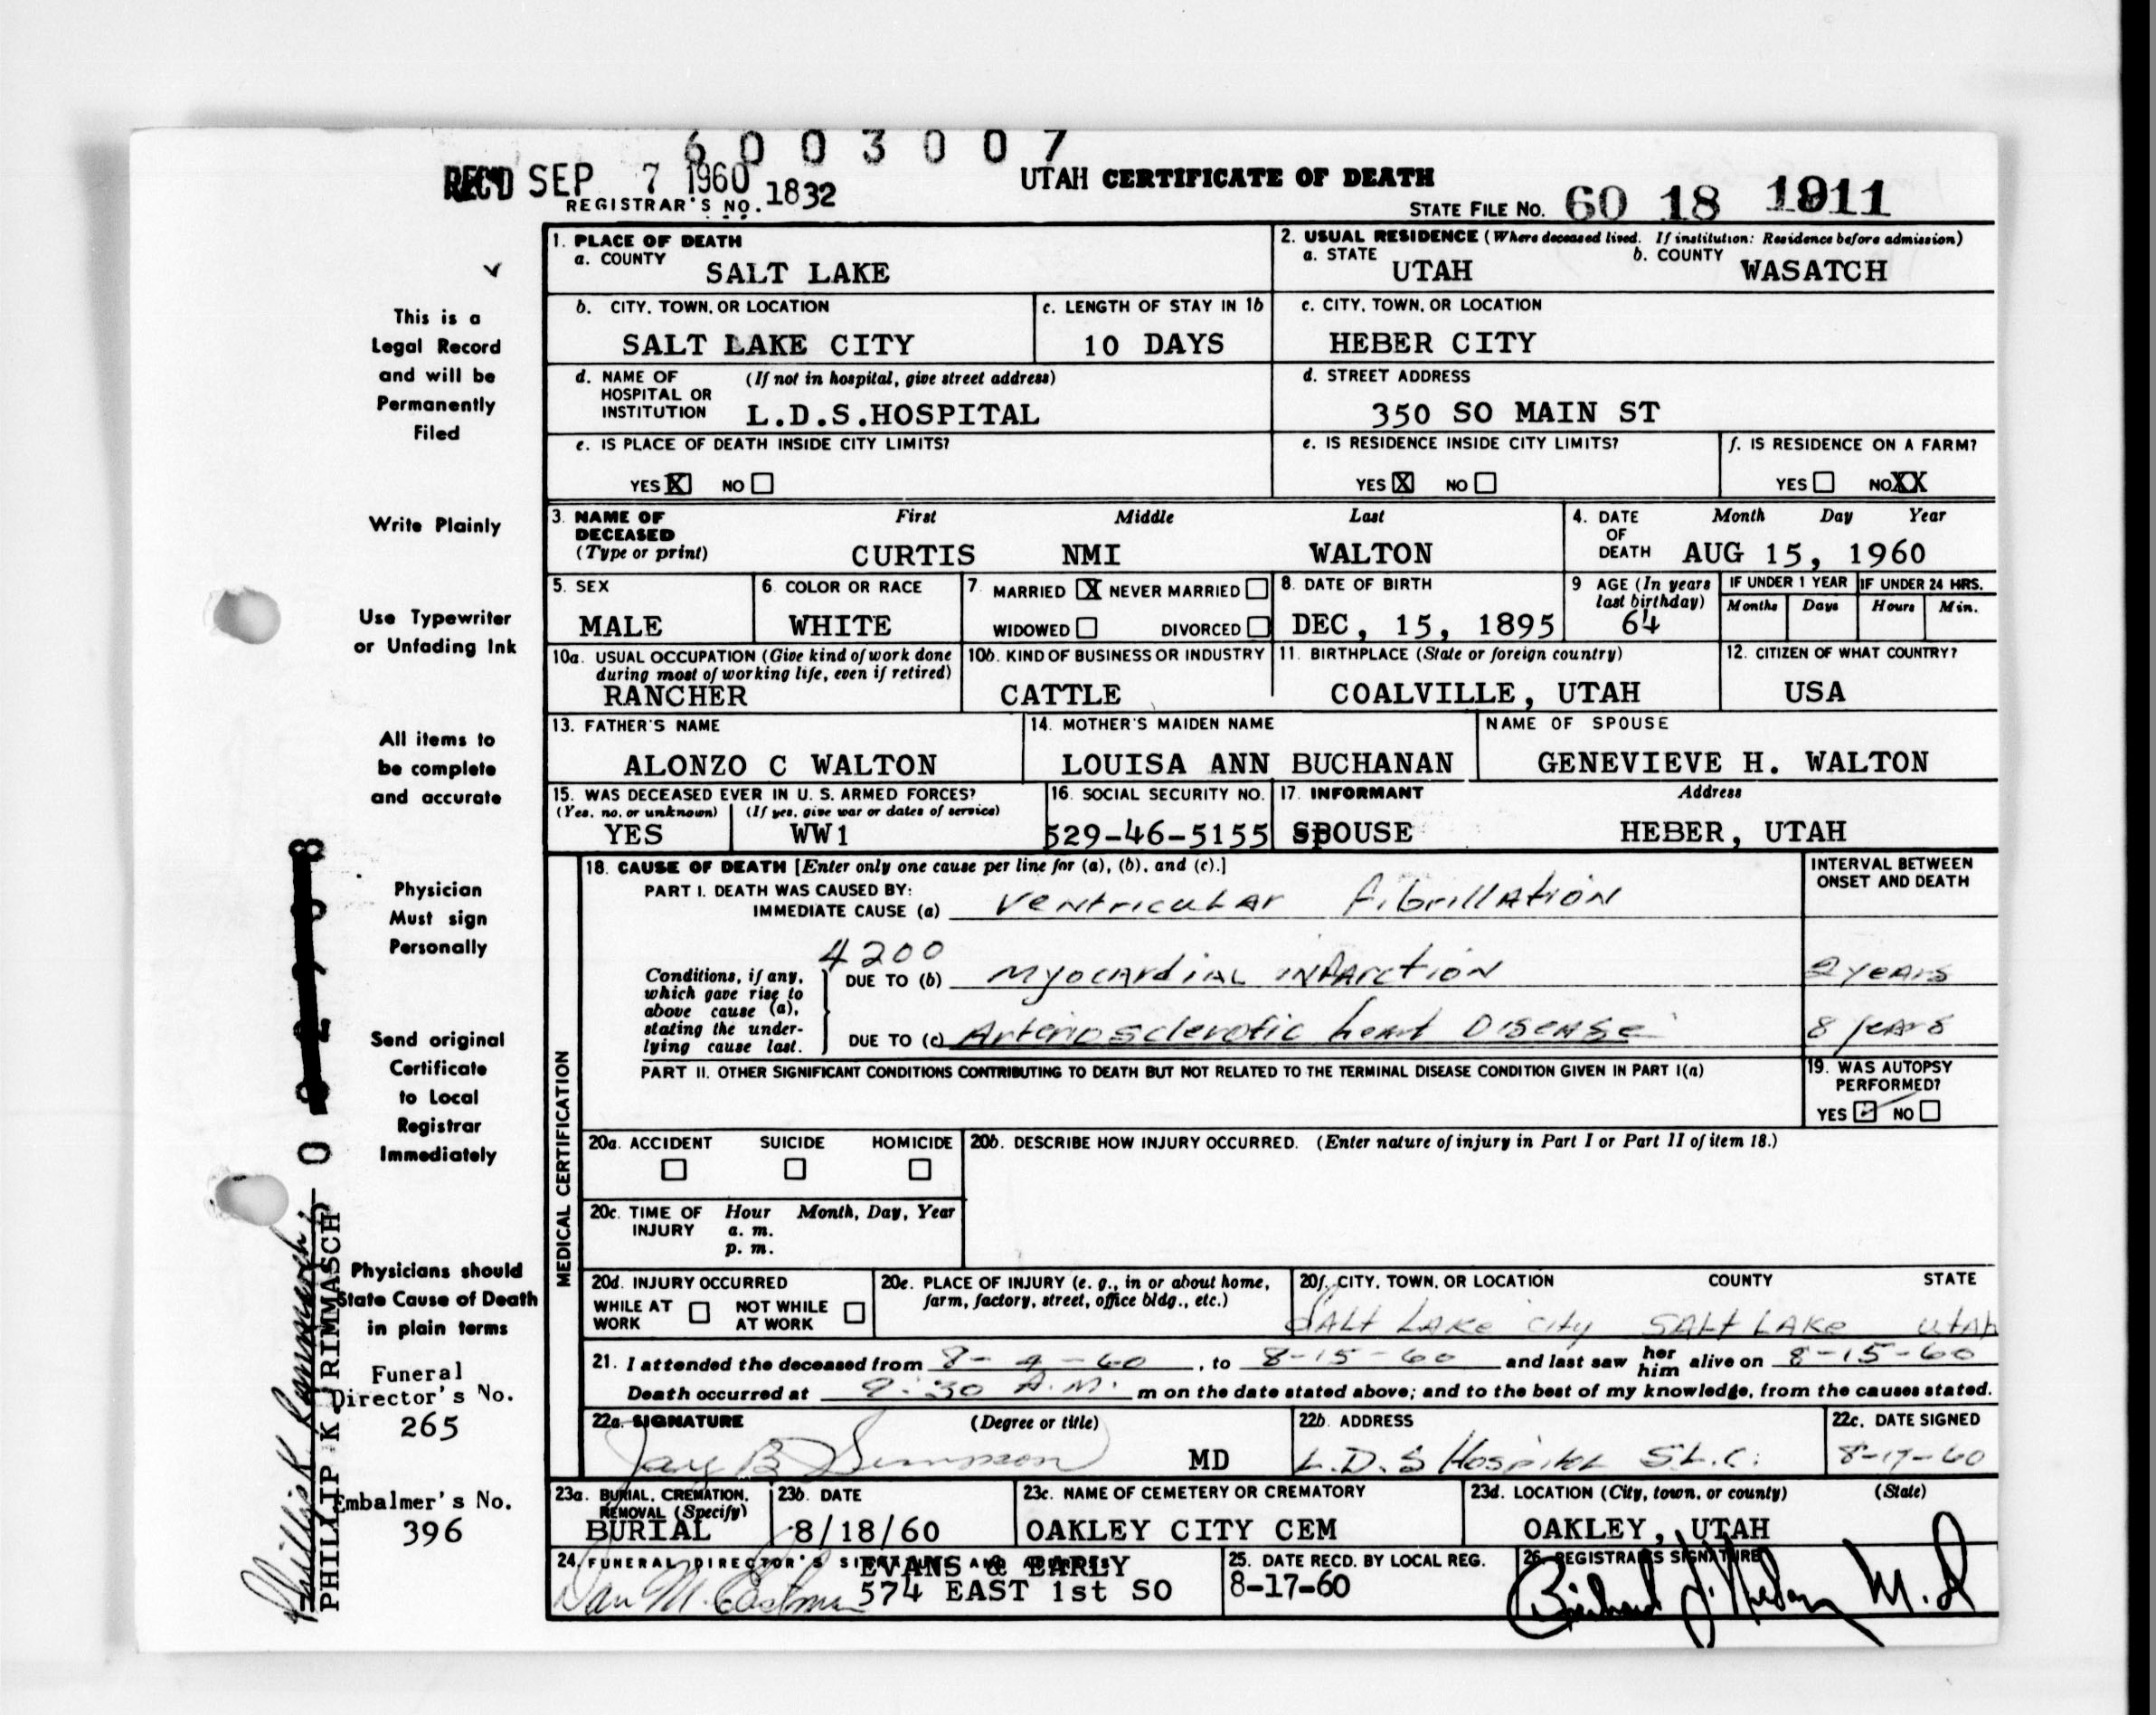 6003007
REC'D SEP 7 1960
REGISTRAR'S NO. 1832
UTAH CERTIFICATE OF DEATH
STATE FILE NO. 60 18 1911
This is a
Legal Record
and will be
Permanently
Filed
Write Plainly
Use Typewriter
or Unfading Ink
All items to
be complete
and accurate
Physician
Must sign
Personally
Send original
Certificate
to Local
Registrar
Immediately
Physicians should
State Cause of Death
in plain terms
Funeral
Director's No.
265
Embalmer's No.
396
PHILLIP K. RIMMASCH
1. PLACE OF DEATH
a. COUNTY
SALT LAKE
2. USUAL RESIDENCE (Where deceased lived. If institution: Residence before admission)
a. STATE UTAH b. COUNTY WASATCH
b. CITY, TOWN, OR LOCATION
SALT LAKE CITY
c. LENGTH OF STAY IN 1b
10 DAYS
c. CITY, TOWN, OR LOCATION
HEBER CITY
d. NAME OF HOSPITAL OR INSTITUTION (If not in hospital, give street address)
L.D.S.HOSPITAL
d. STREET ADDRESS
350 SO MAIN ST
e. IS PLACE OF DEATH INSIDE CITY LIMITS?
YES X NO
e. IS RESIDENCE INSIDE CITY LIMITS?
YES X NO
f. IS RESIDENCE ON A FARM?
YES NO XX
3. NAME OF DECEASED (Type or print)
First Middle Last
CURTIS NMI WALTON
4. DATE OF DEATH Month Day Year
AUG 15, 1960
5. SEX
MALE
6. COLOR OR RACE
WHITE
7. MARRIED X NEVER MARRIED
WIDOWED DIVORCED
8. DATE OF BIRTH
DEC, 15, 1895
9 AGE (In years last birthday)
64
IF UNDER 1 YEAR
Months Days
IF UNDER 24 HRS.
Hours Min.
10a. USUAL OCCUPATION (Give kind of work done during most of working life, even if retired)
RANCHER
10b. KIND OF BUSINESS OR INDUSTRY
CATTLE
11. BIRTHPLACE (State or foreign country)
COALVILLE, UTAH
12. CITIZEN OF WHAT COUNTRY?
USA
13. FATHER'S NAME
ALONZO C WALTON
14. MOTHER'S MAIDEN NAME
LOUISA ANN BUCHANAN
NAME OF SPOUSE
GENEVIEVE H. WALTON
15. WAS DECEASED EVER IN U. S. ARMED FORCES?
(Yes, no, or unknown) (If yes, give war or dates of service)
YES WW1
16. SOCIAL SECURITY NO.
529-46-5155
17. INFORMANT Address
SPOUSE HEBER, UTAH
MEDICAL CERTIFICATION
18. CAUSE OF DEATH [Enter only one cause per line for (a), (b), and (c).]
INTERVAL BETWEEN ONSET AND DEATH
PART I. DEATH WAS CAUSED BY:
IMMEDIATE CAUSE (a) Ventricular fibrillation
4200
Conditions, if any, which gave rise to above cause (a), stating the underlying cause last.
DUE TO (b) Myocardial infarction 2 years
DUE TO (c) Arteriosclerotic heart Disease 8 years
PART II. OTHER SIGNIFICANT CONDITIONS CONTRIBUTING TO DEATH BUT NOT RELATED TO THE TERMINAL DISEASE CONDITION GIVEN IN PART I(a)
19. WAS AUTOPSY PERFORMED?
YES ✓ NO
20a. ACCIDENT SUICIDE HOMICIDE
20b. DESCRIBE HOW INJURY OCCURRED. (Enter nature of injury in Part I or Part II of item 18.)
20c. TIME OF INJURY Hour Month, Day, Year
a. m.
p. m.
20d. INJURY OCCURRED
WHILE AT WORK NOT WHILE AT WORK
20e. PLACE OF INJURY (e. g., in or about home, farm, factory, street, office bldg., etc.)
20f. CITY, TOWN, OR LOCATION COUNTY STATE
Salt Lake City Salt Lake Utah
21. I attended the deceased from 8-4-60, to 8-15-60 and last saw her him alive on 8-15-60
Death occurred at 9:30 A.M. m on the date stated above; and to the best of my knowledge, from the causes stated.
22a. SIGNATURE (Degree or title)
Jay B Simpson MD
22b. ADDRESS
L.D.S Hospital S.L.C.
22c. DATE SIGNED
8-17-60
23a. BURIAL, CREMATION, REMOVAL (Specify)
BURIAL
23b. DATE
8/18/60
23c. NAME OF CEMETERY OR CREMATORY
OAKLEY CITY CEM
23d. LOCATION (City, town, or county) (State)
OAKLEY, UTAH
24. FUNERAL DIRECTOR'S SIGNATURE AND ADDRESS
EVANS & EARLY
574 EAST 1st SO
25. DATE RECD. BY LOCAL REG.
8-17-60
26. REGISTRAR'S SIGNATURE
M.D